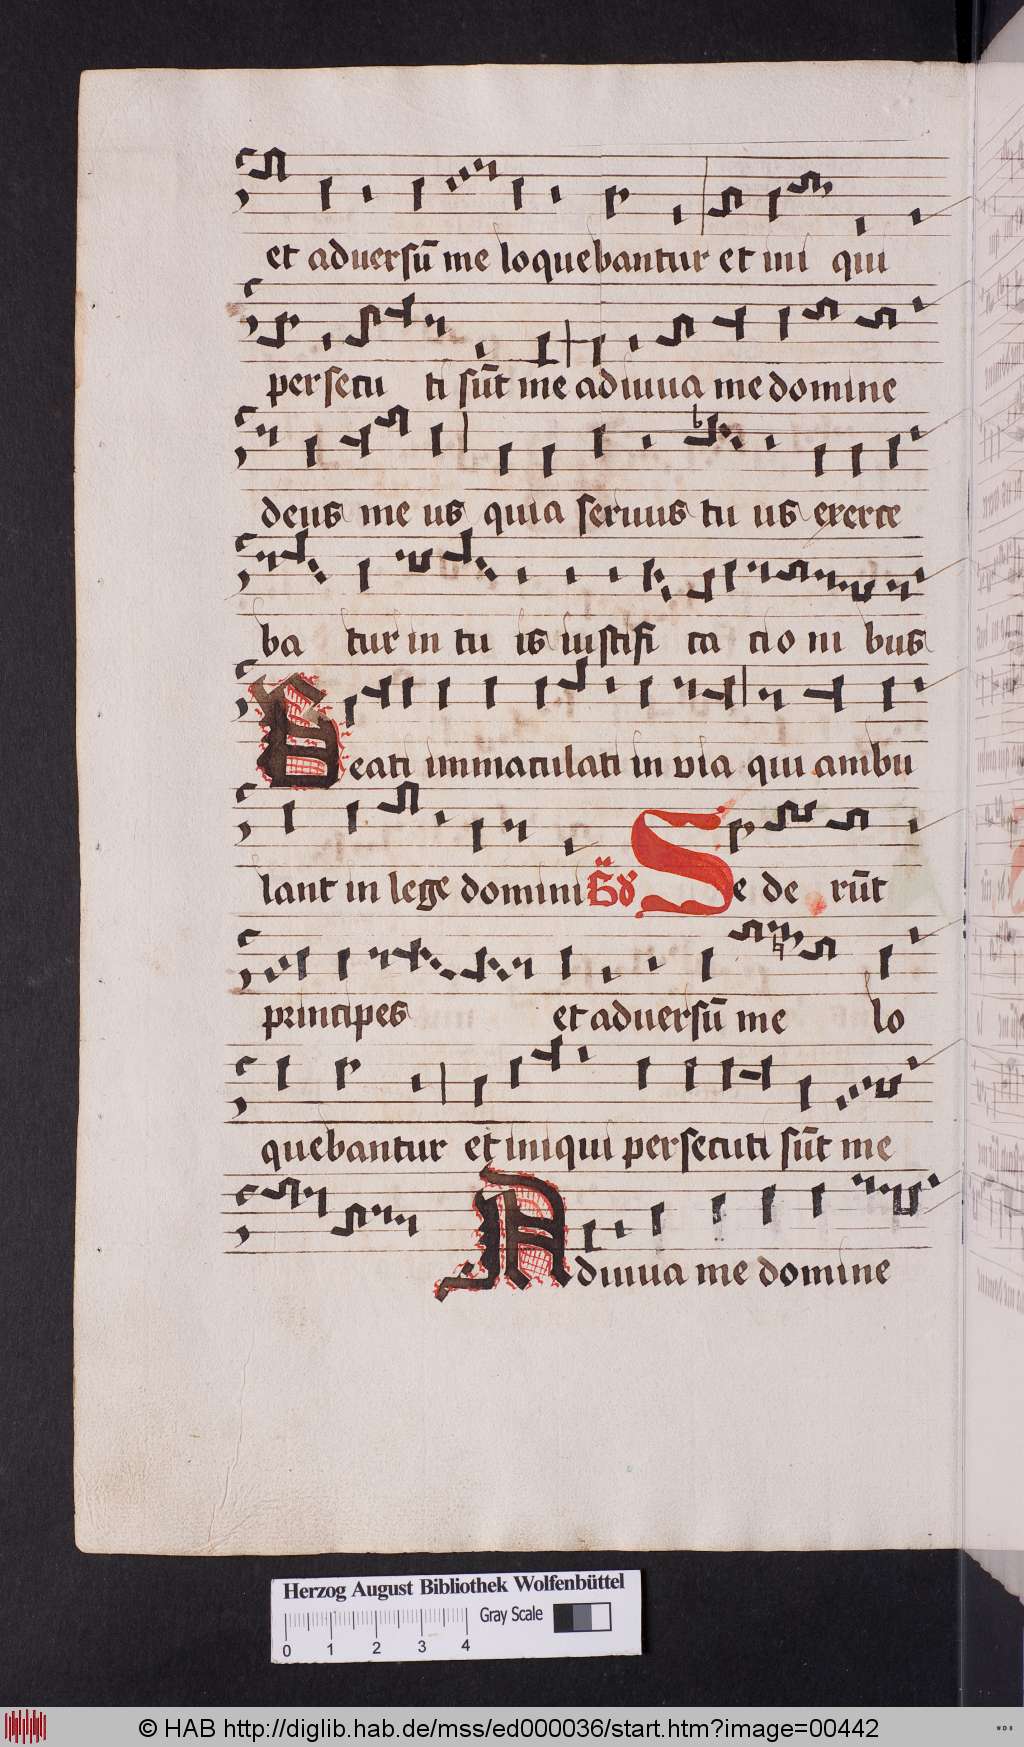 et aduersū me loquebantur et ini qui
persecu ti sūt me adiuua me domine
deus me us quia seruus tu us exerce
ba tur in tu is iustifi ca cio ni bus
Beati immaculati in via qui ambu
lant in lege domini Gͫ Se de rūt
principes et aduersū me lo
quebantur et iniqui persecuti sūt me
Adiuua me domine
Herzog August Bibliothek Wolfenbüttel
0 1 2 3 4 Gray Scale
© HAB http://diglib.hab.de/mss/ed000036/start.htm?image=00442